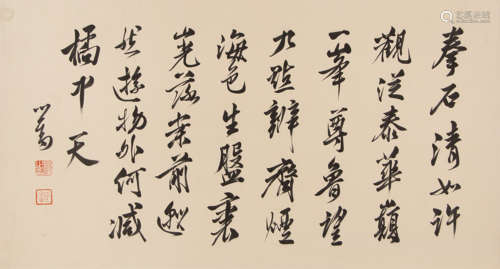 拳石清如許
觀從泰華巔
一峯尊魯望
九點辨齊煙
海色生盤裏
光落案前
然遊物外何減
橘中天
心畬